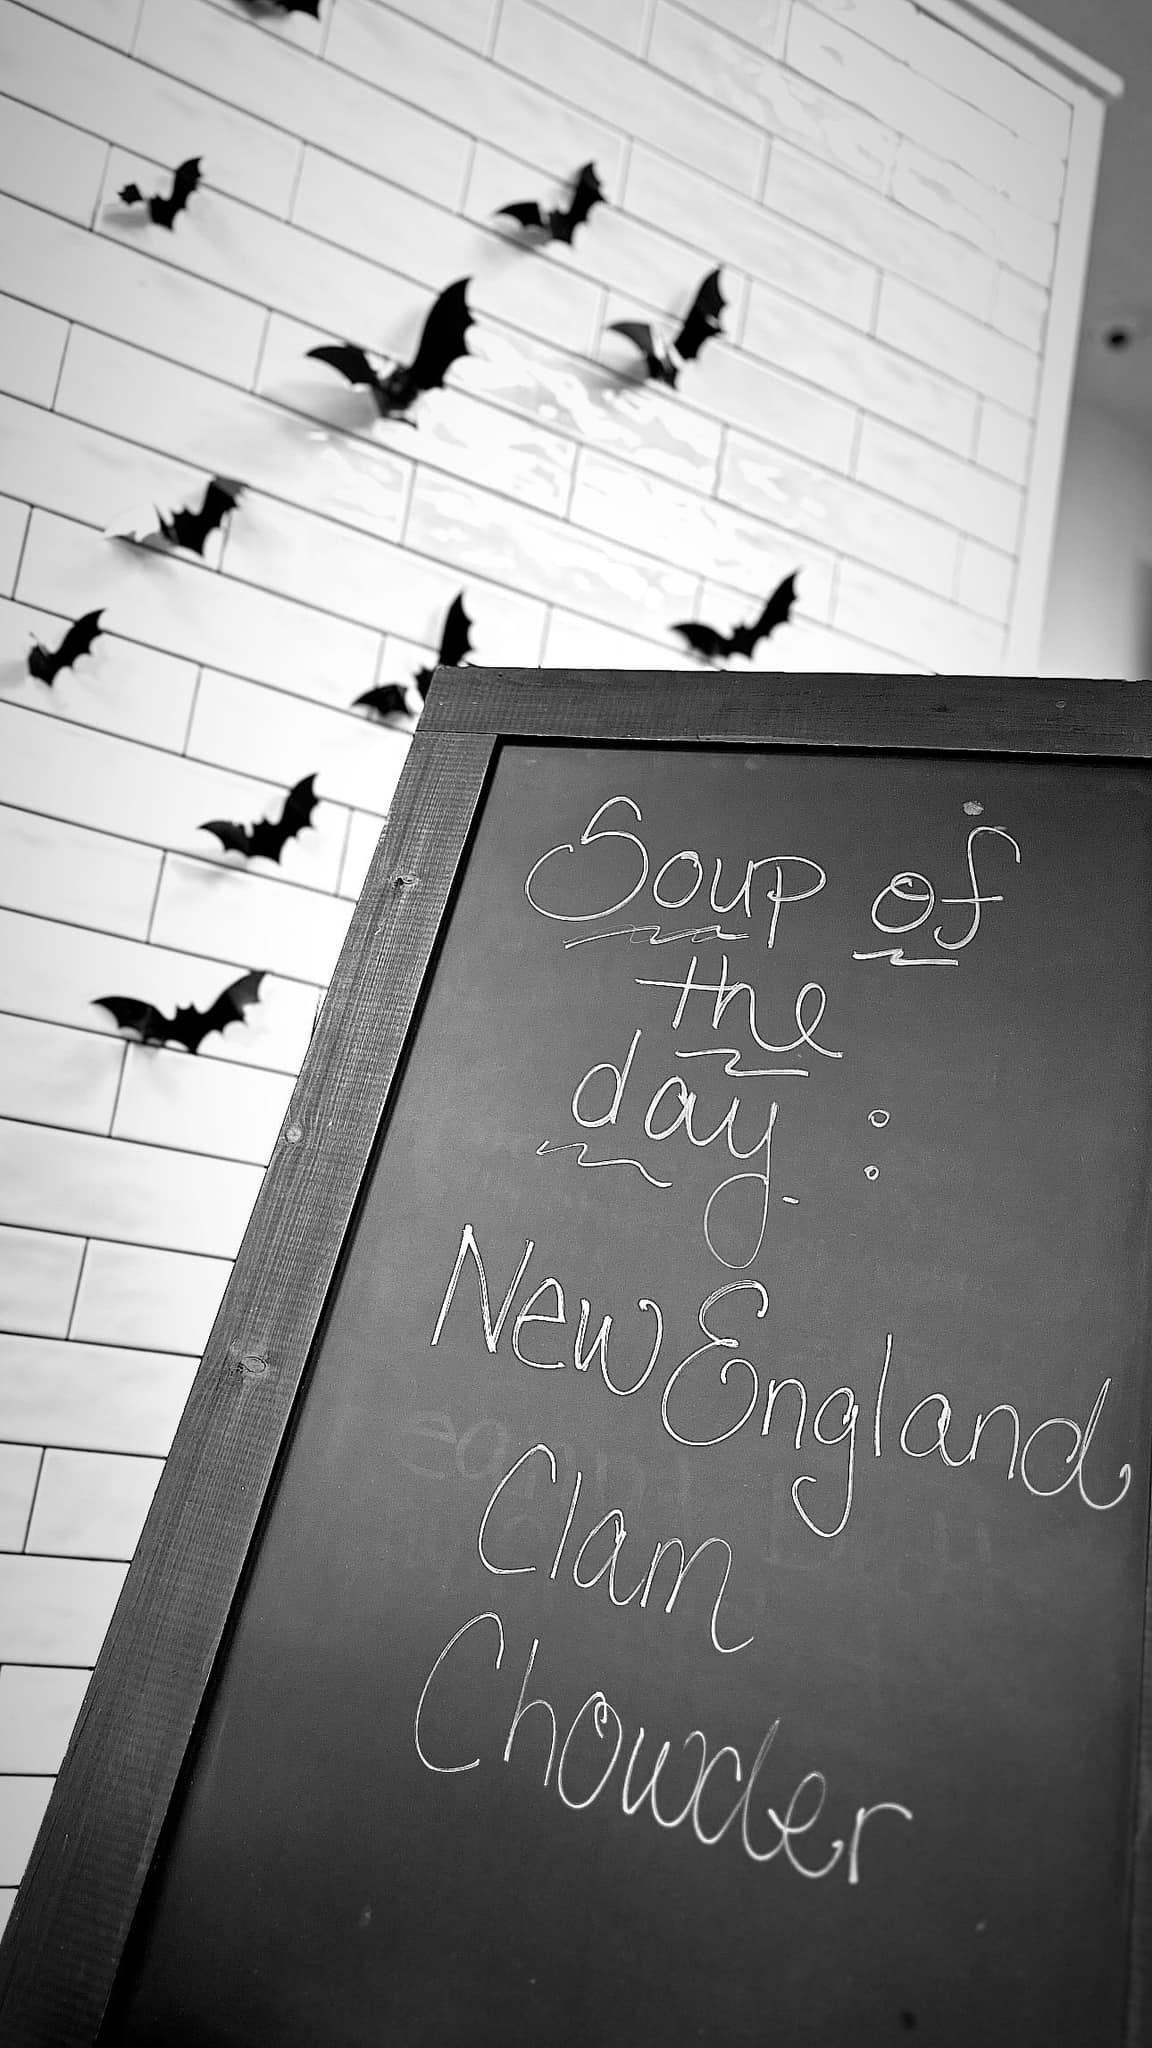 Soup of
the
day :
New England
Clam
Chowder